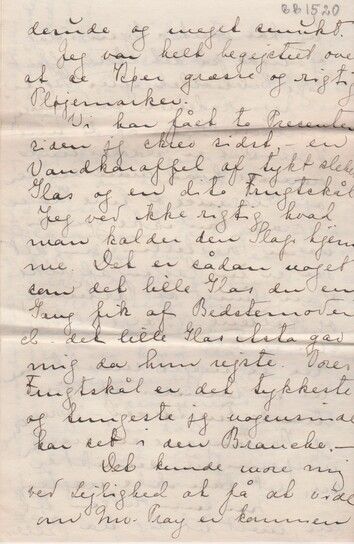 BB1520
derude og meget smukt.
Jeg var helt begejstret over
at se Køer græsse og rigtig
Pløjemarker.
Vi har fået to Presenter
siden jeg skrev sidst, – en
Vandkaraffel af tykt sleb
Glas og en dito Frugtskål
Jeg ved ikke rigtig hvad
man kalder den Slags hjem
me. Det er sådan noget
som det lille Glas du en
Gang fik af Bedstemoder
el. det lille Glas Asta gav
mig da hun rejste. Vores
Frugtskål er det tykkeste
og tungeste jeg nogensinde
har set i den Branche. –
Det kunde more mig
ved Lejlighed at få at vide
om Mrs. Pray er kommen